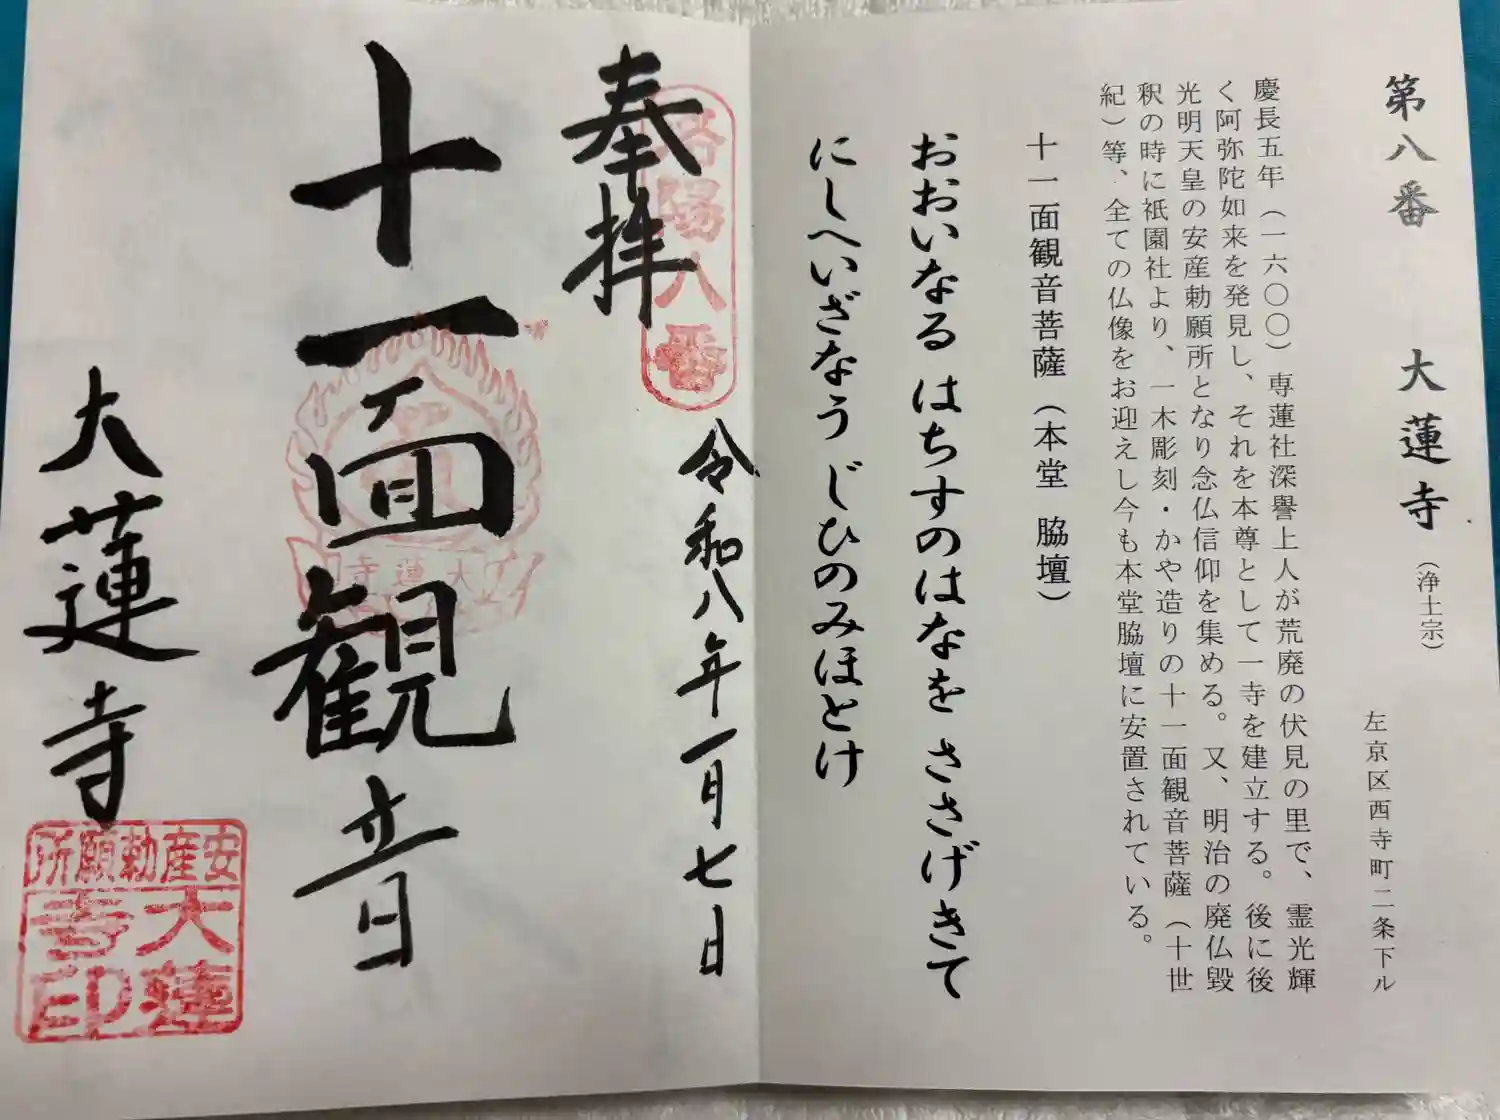 第八番 大蓮寺（浄土宗）
左京区西寺町二条下ル
慶長五年（一六〇〇）専蓮社深譽上人が荒廃の伏見の里で、霊光輝
く阿弥陀如来を発見し、それを本尊として一寺を建立する。後に後
光明天皇の安産勅願所となり念仏信仰を集める。又、明治の廃仏毀
釈の時に祇園社より、一木彫刻・かや造りの十一面観音菩薩（十世
紀）等、全ての仏像をお迎えし今も本堂脇壇に安置されている。
十一面観音菩薩（本堂 脇壇）
おおいなる はちすのはなを ささげきて
にしへいざなう じひのみほとけ
奉拝
洛陽八番
令和八年一月七日
十一面観音
大蓮寺
大蓮寺
安産勅願所
大蓮
寺印